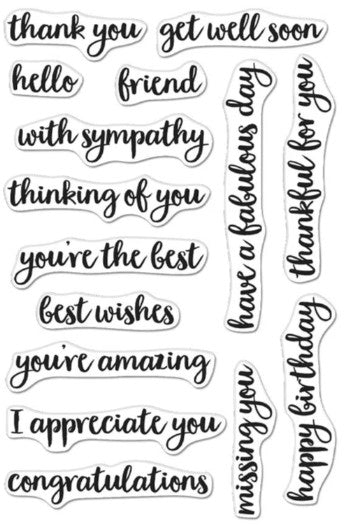 thank you
get well soon
hello
friend
with sympathy
thinking of you
you're the best
best wishes
you're amazing
I appreciate you
congratulations
have a fabulous day
thankful for you
missing you
happy birthday